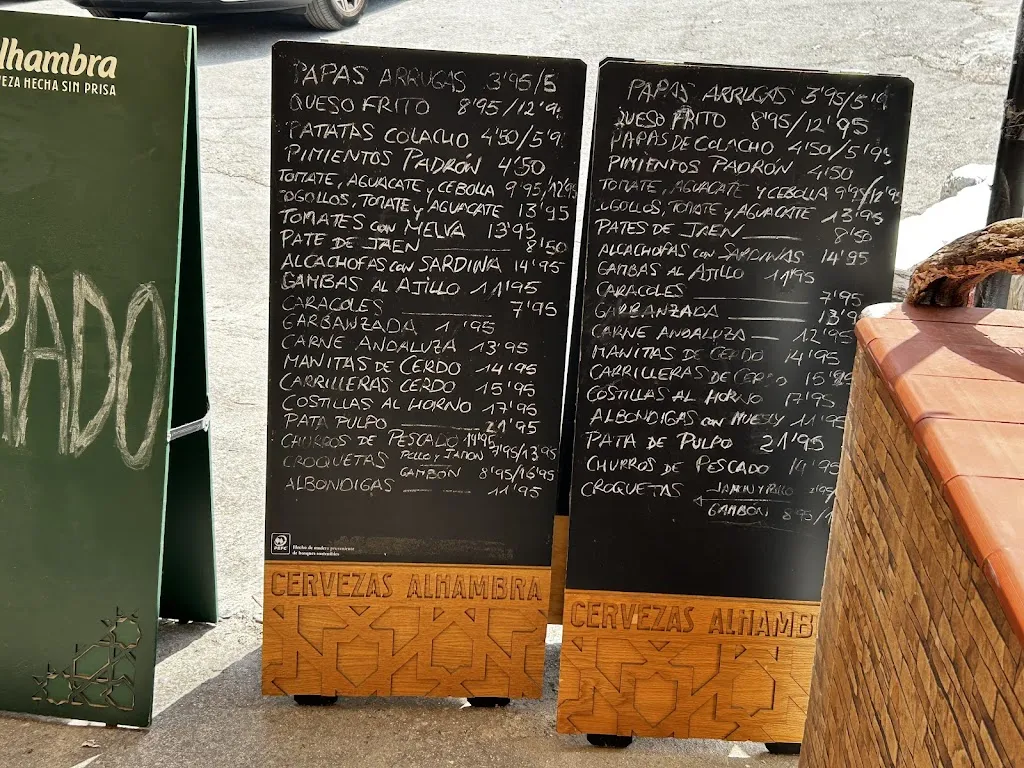 lhambra
EZA HECHA SIN PRISA
RADO
PAPAS ARRUGAS 3'95/5
QUESO FRITO 8'95/12'9
PATATAS COLACHO 4'50/5'9
PIMIENTOS PADRÓN 4'50
TOMATE, AGUACATE y CEBOLLA 9'95/12'95
OGOLLOS, TOMATE y AGUACATE 13'95
TOMATES con MELVA 13'95
PATE DE JAEN 8'50
ALCACHOFAS con SARDINA 14'95
GAMBAS AL AJILLO 11'95
CARACOLES 7'95
GARBANZADA 11'95
CARNE ANDALUZA 13'95
MANITAS DE CERDO 14'95
CARRILLERAS CERDO 15'95
COSTILLAS AL HORNO 17'95
PATA PULPO 21'95
CHURROS DE PESCADO 14'95
CROQUETAS POLLO y JAMON 7'95/13'95
GAMBÓN 8'95/16'95
ALBONDIGAS 11'95
PEFC
Hecho de madera proveniente
de bosques sostenibles
CERVEZAS ALHAMBRA
PAPAS ARRUGAS 3'95/5'9
QUESO FRITO 8'95/12'95
PAPAS DE COLACHO 4'50/5'95
PIMIENTOS PADRÓN 4'50
TOMATE, AGUACATE Y CEBOLLA 9'95/12'95
OGOLLOS, TOMATE y AGUACATE 13'95
PATES DE JAEN 8'50
ALCACHOFAS con SARDINAS 14'95
GAMBAS AL AJILLO 11'95
CARACOLES 7'95
GARBANZADA 13'9
CARNE ANDALUZA 12'95
MANITAS DE CERDO 14'95
CARRILLERAS DE CERDO 15'95
COSTILLAS AL HORNO 17'95
ALBONDIGAS con 11'95
PATA DE PULPO 21'95
CHURROS DE PESCADO 14'95
CROQUETAS JAMON Y POLLO
GAMBÓN 8'95/1
CERVEZAS ALHAMB